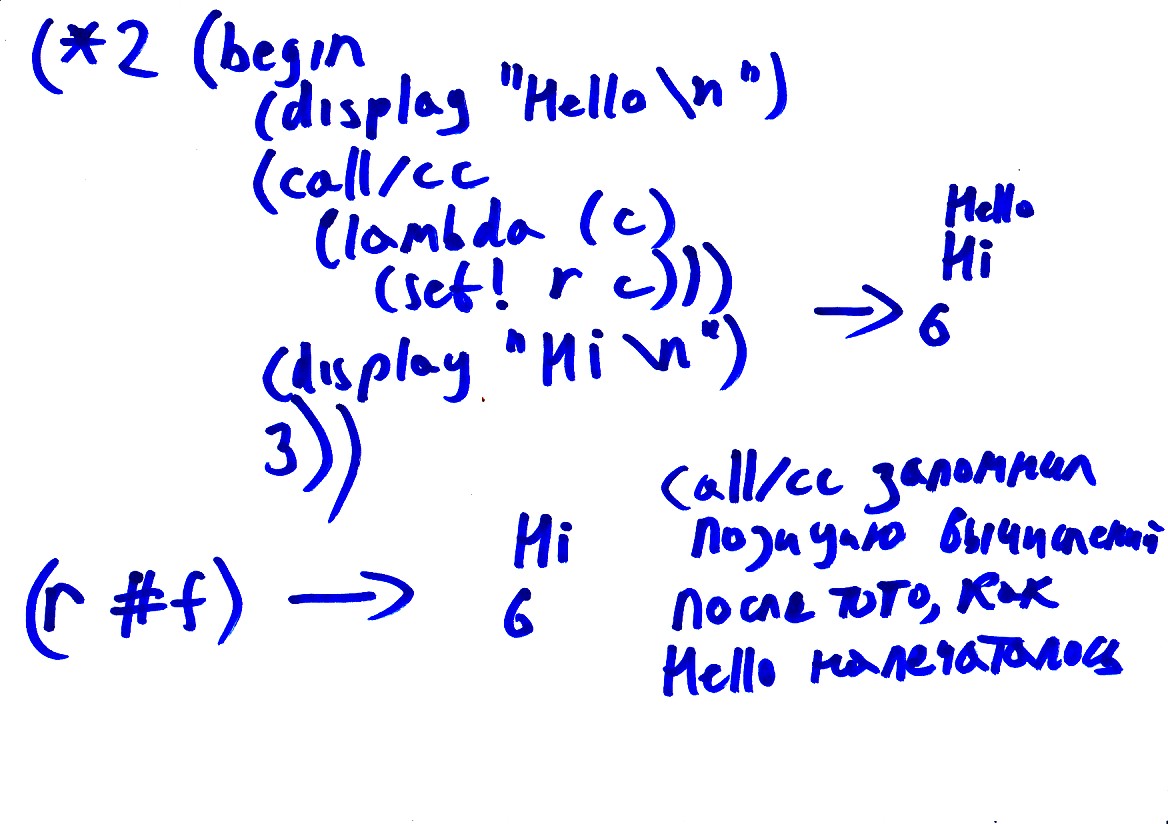 (*2 (begin
(display "Hello \n")
(call/cc
(lambda (c)
(set! r c)))
(display "Hi \n")
3))
→
Hello
Hi
6
(r #f) →
Hi
6
call/cc запомнил
позицию вычислений
после того, как
Hello напечаталось